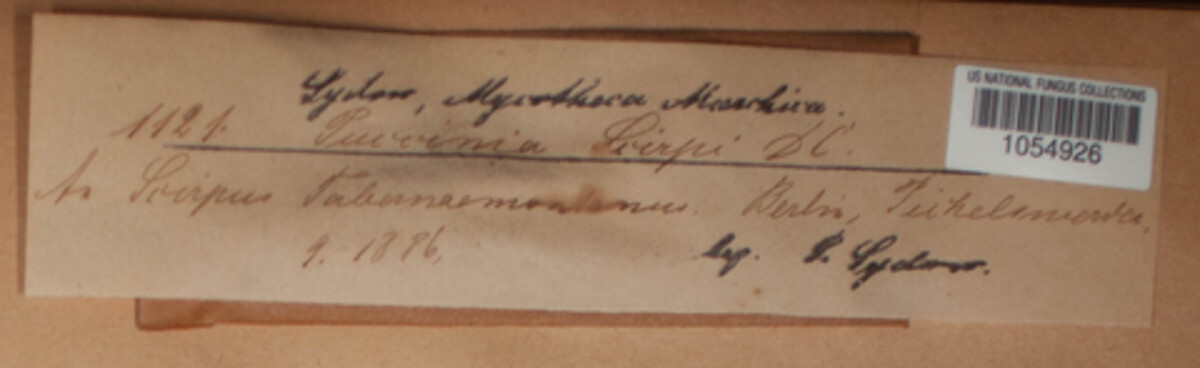 Sydow, Mycotheca Marchica.
1121. Puccinia Scirpi DC.
An Scirpus Tabernaemontanus. Berlin, Pichelswerder,
9. 1886. leg. P. Sydow.
US NATIONAL FUNGUS COLLECTIONS
1054926